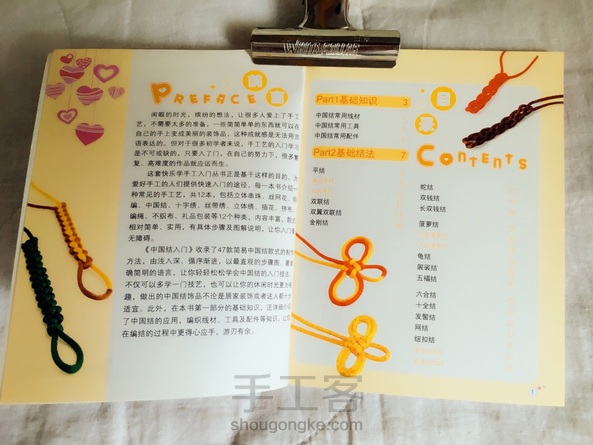 前言
PREFACE
闲暇的时光，缤纷的想法，让很多人爱上了手工
艺，不需要太多的准备，一些简简单单的东西就可以在
自己的手上变成美丽的装饰品，这种成就感是无法用言
语表达的。但对于很多初学者来说，手工艺的入门学习
是不可或缺的，只要入了门，在自己的努力下，很多繁
复、高难度的作品就应运而生。
这套快乐学手工入门丛书正是基于这样的目的，为
爱好手工的人们提供快速入门的途径，每一本书介绍一
种常见的手工艺，共12本，包括立体串珠、丝网花、
编、中国结、十字绣、丝带绣、立体绣、插花、拼布、
编绳、不织布、礼品包装等12个种类，内容丰富，款式
相对简单、实用，有具体步骤及图解说明，让你入门
无障碍。
《中国结入门》收录了47款简易中国结款式的制作
方法，由浅入深、循序渐进，以最直观的步骤图、最
确简明的语言，让你轻轻松松学会中国结的入门技法，
不仅可以多学一门技艺，也可以让你的休闲时光更为
趣，做出的中国结饰品不论是居家装饰或者送人都十分
适宜。此外，在本书第一部分的基础知识，还详细介绍
了中国结的应用、编织线材、工具及配件等知识，让你
在编结的过程中更得心应手，游刃有余。
目录
CONTENTS
Part1基础知识 3
中国结常用线材
中国结常用工具
中国结常用配件
Part2基础结法 7
平结
双联结
双翼双联结
金刚结
蛇结
双钱结
长双钱结
菠萝结
龟结
袈裟结
五福结
六合结
十全结
发簪结
网结
纽扣结
1
手工客
shougongke.com